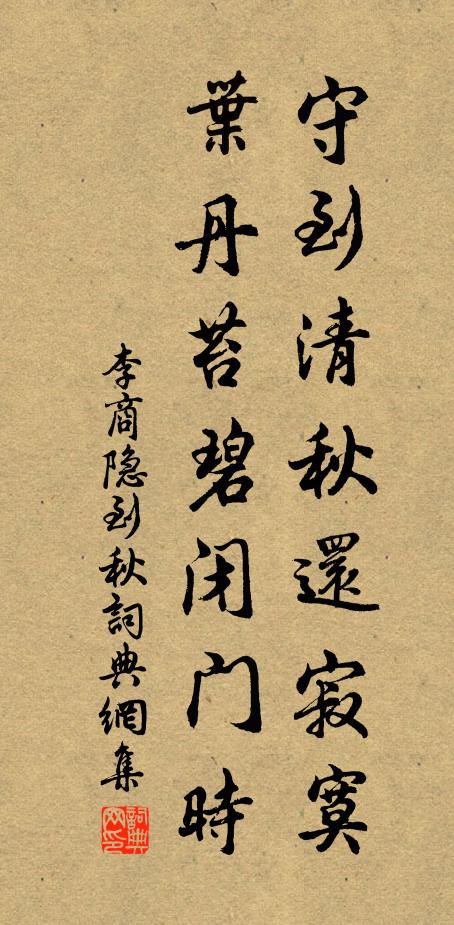 守到清秋還寂寞
葉丹苔碧闭门時
李商隐到秋詞典網集
詞典
网印